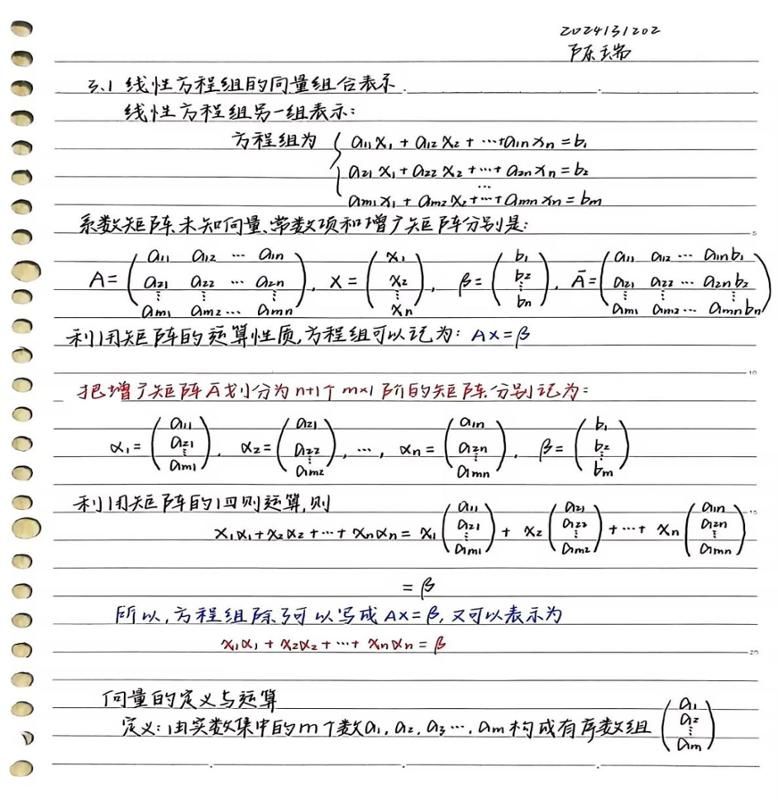 2024131202
陈瑞
3.1 线性方程组的向量组合表示.
线性方程组另一组表示:
方程组为 { a₁₁x₁ + a₁₂x₂ + ⋯ + a₁ₙxₙ = b₁
a₂₁x₁ + a₂₂x₂ + ⋯ + a₂ₙxₙ = b₂
⋯
aₘ₁x₁ + aₘ₂x₂ + ⋯ + aₘₙxₙ = bₘ
系数矩阵、未知向量、常数项和增广矩阵分别是:
A = (a₁₁ a₁₂ ⋯ a₁ₙ; a₂₁ a₂₂ ⋯ a₂ₙ; ⋮ ⋮ ⋮; aₘ₁ aₘ₂ ⋯ aₘₙ), X = (x₁; x₂; ⋮; xₙ), β = (b₁; b₂; ⋮; bₙ), Ā = (a₁₁ a₁₂ ⋯ a₁ₙ b₁; a₂₁ a₂₂ ⋯ a₂ₙ b₂; ⋮ ⋮ ⋮; aₘ₁ aₘ₂ ⋯ aₘₙ bₙ)
利用矩阵的运算性质,方程组可以记为: AX=β
把增广矩阵Ā划分为n+1个m×1阶的矩阵分别记为:
α₁ = (a₁₁; a₂₁; ⋮; aₘ₁), α₂ = (a₂₁; a₂₂; ⋮; aₘ₂), ⋯, αₙ = (a₁ₙ; a₂ₙ; ⋮; aₘₙ), β = (b₁; b₂; ⋮; bₘ)
利用矩阵的四则运算,则
x₁α₁ + x₂α₂ + ⋯ + xₙαₙ = x₁(a₁₁; a₂₁; ⋮; aₘ₁) + x₂(a₂₁; a₂₂; ⋮; aₘ₂) + ⋯ + xₙ(a₁ₙ; a₂ₙ; ⋮; aₘₙ)
= β
所以,方程组除了可以写成AX=β,又可以表示为
x₁α₁ + x₂α₂ + ⋯ + xₙαₙ = β
向量的定义与运算
定义:由实数集中的m个数a₁, a₂, a₃ ⋯, aₘ构成有序数组 (a₁; a₂; ⋮; aₘ)
5
10
15
20